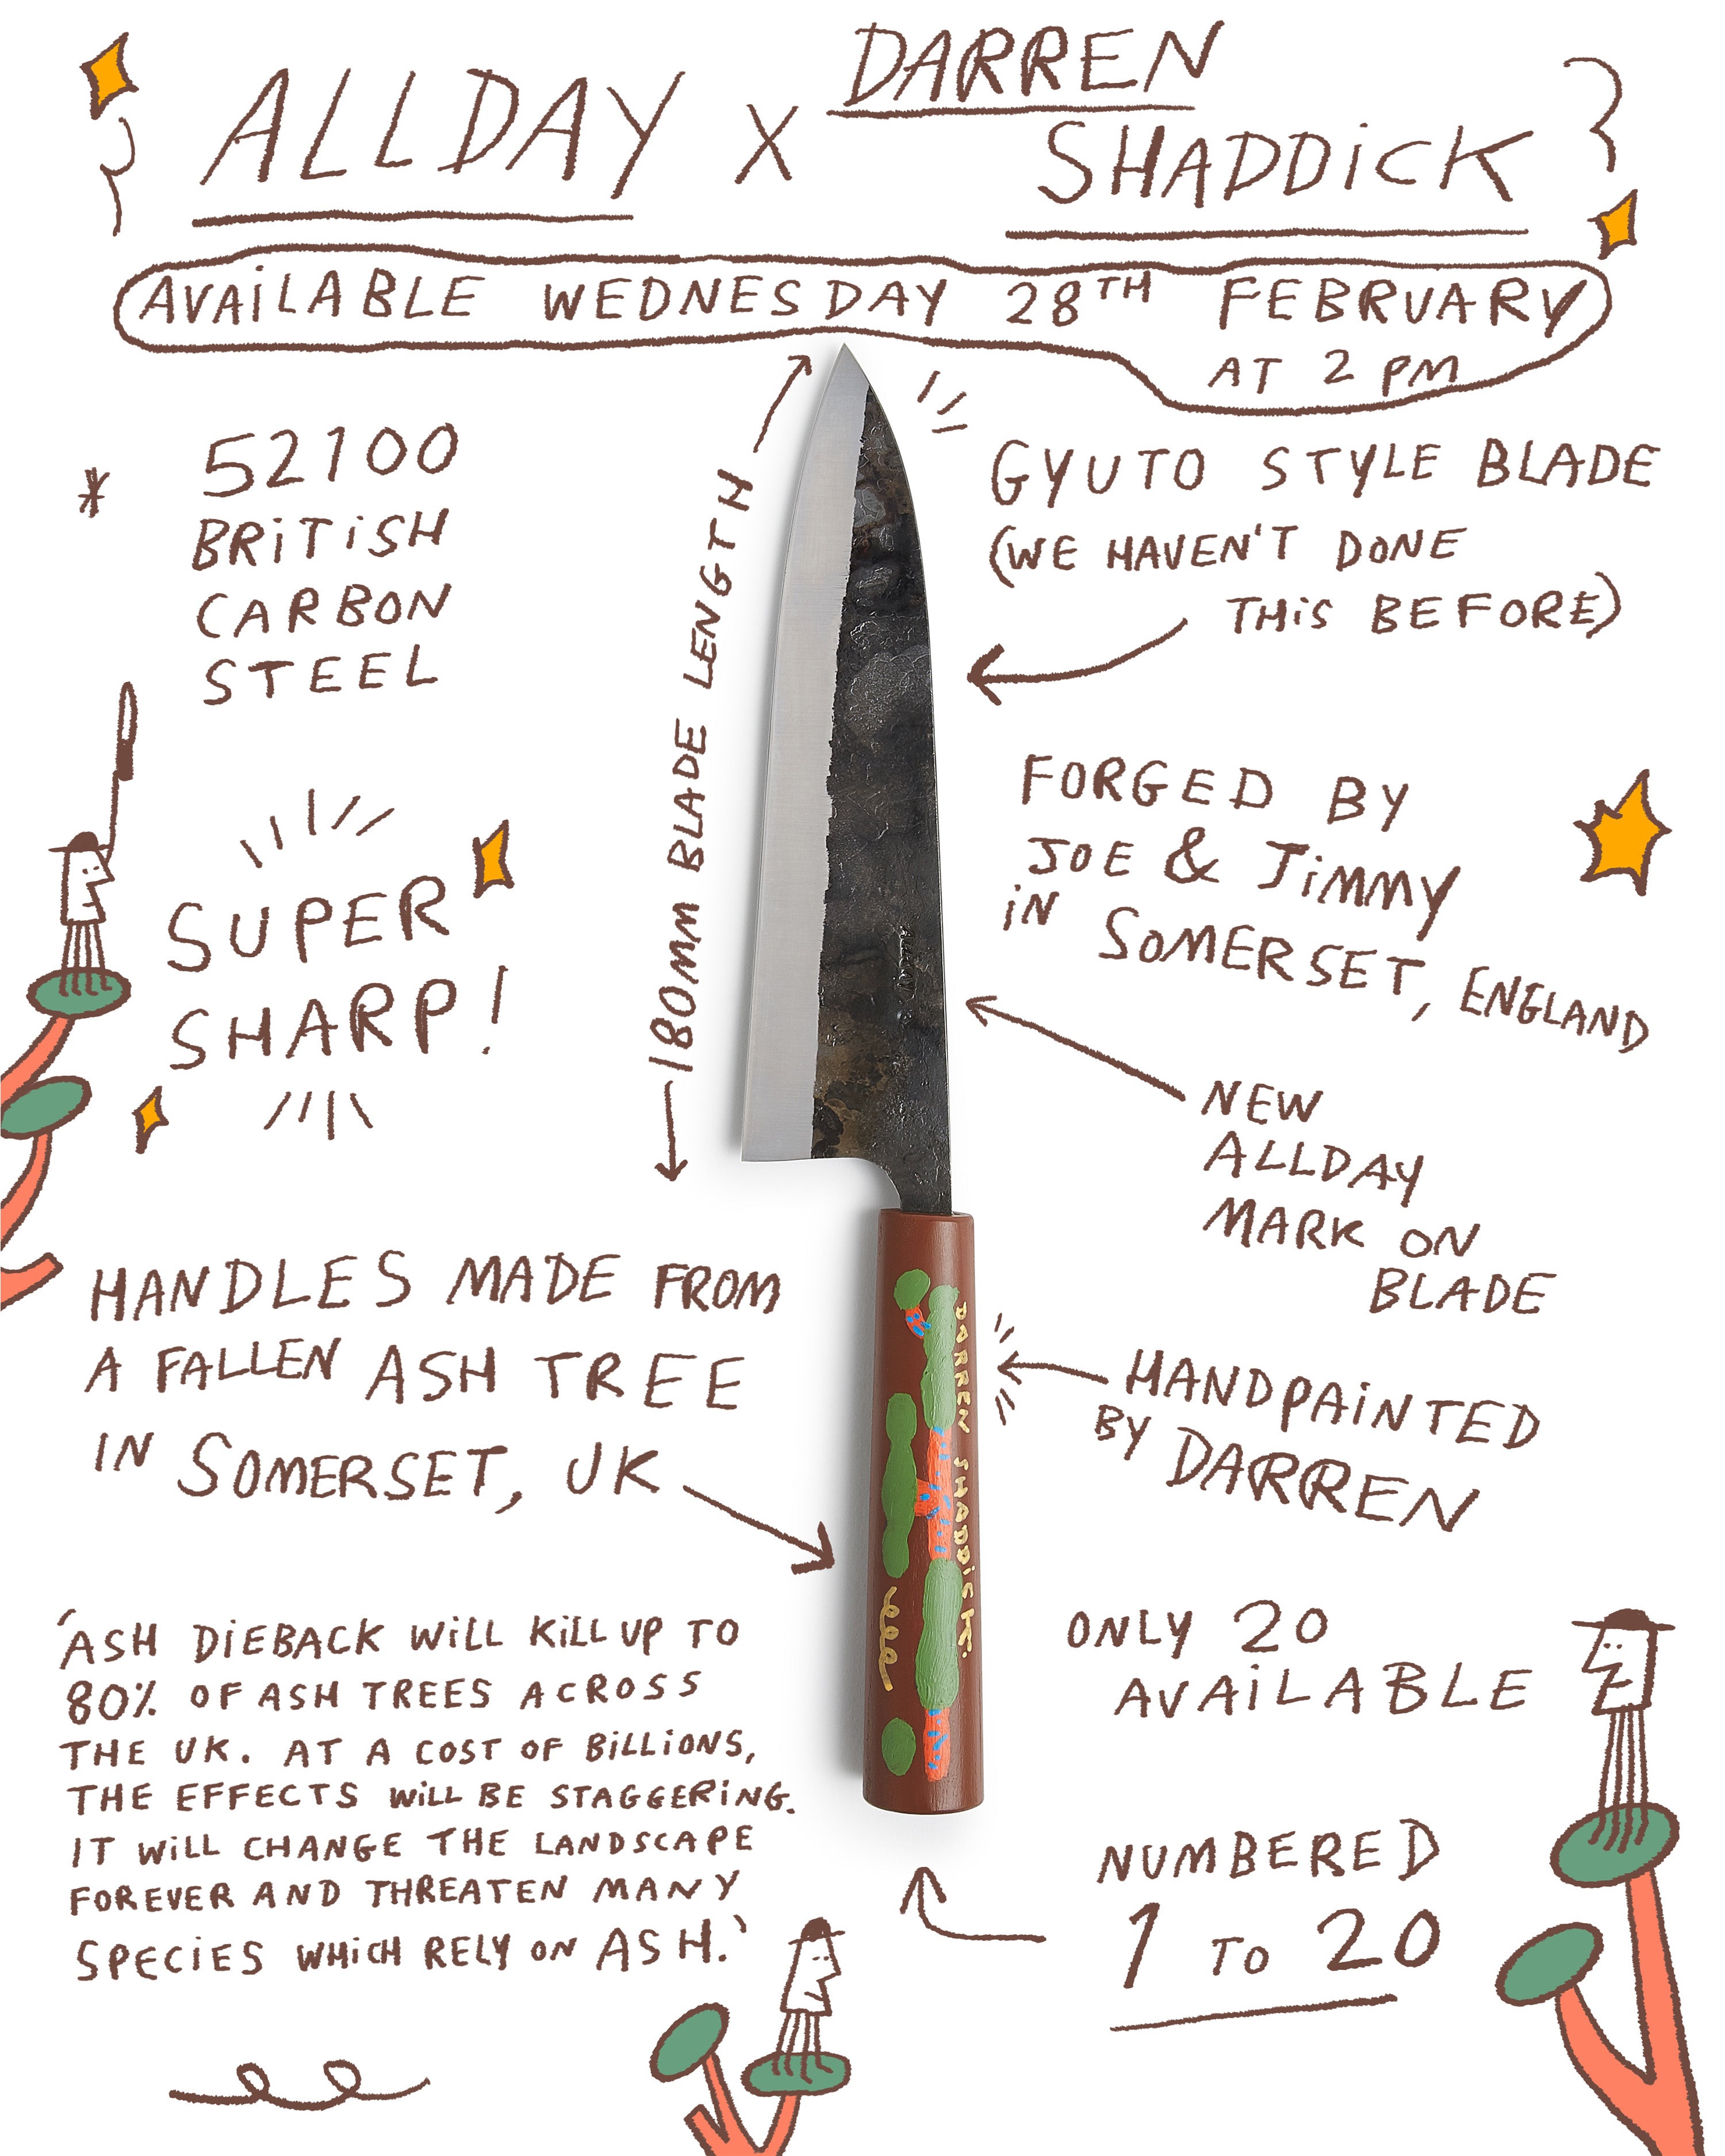 ALLDAY X DARREN
SHADDiCK
AVAiLABLE WEDNESDAY 28TH FEBRUARY
AT 2 PM
* 52100
BRiTiSH
CARBON
STEEL
180MM BLADE LENGTH
GYUTO STYLE BLADE
(WE HAVEN'T DONE
THiS BEFORE)
SUPER
SHARP!
FORGED BY
JOE & JiMMY
iN SOMERSET, ENGLAND
ALLDAY
NEW
ALLDAY
MARK ON
BLADE
HANDLES MADE FROM
A FALLEN ASH TREE
IN SOMERSET, UK
DARREN SHADDiCK.
HANDPAiNTED
BY DARREN
'ASH DiEBACK WiLL KiLL UP TO
80% OF ASH TREES ACROSS
THE UK. AT A COST OF BiLLiONS,
THE EFFECTS WiLL BE STAGGERiNG.
IT WiLL CHANGE THE LANDSCAPE
FOREVER AND THREATEN MANY
SPECiES WHiCH RELY ON ASH.'
ONLY 20
AVAiLABLE
NUMBERED
1 TO 20